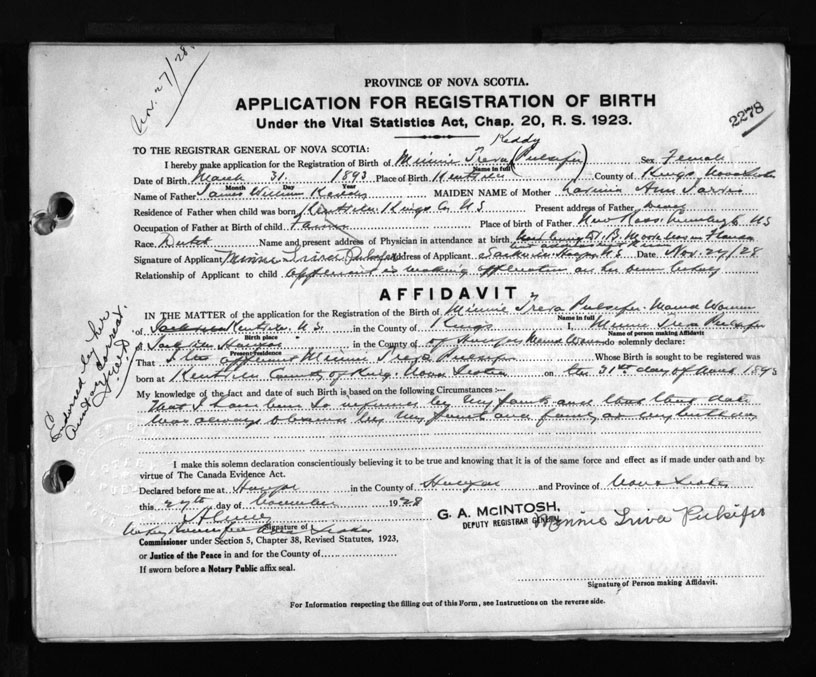 Nov. 27/28.
PROVINCE OF NOVA SCOTIA.
APPLICATION FOR REGISTRATION OF BIRTH
2278
Under the Vital Statistics Act, Chap. 20, R. S. 1923.
Keddy
TO THE REGISTRAR GENERAL OF NOVA SCOTIA:
I hereby make application for the Registration of Birth of Minnie Treva (Pulsifer) Sex Female
Name in full
Date of Birth March 31 1893 Place of Birth Kentville County of Kings Nova Scotia
Month Day Year
Name of Father James William Keddy MAIDEN NAME of Mother Ann
Residence of Father when child was born Kentville Kings Co. N S Present address of Father
Occupation of Father at Birth of child Farmer Place of birth of Father New Ross Lunenburg N S
Race Dutch Name and present address of Physician in attendance at birth
Signature of Applicant Minnie Triva Pulsifer Address of Applicant N.S. Date Nov. 27/28
Relationship of Applicant to child applicant is making application on her own behalf
AFFIDAVIT
IN THE MATTER of the application for the Registration of the Birth of Minnie Treva Pulsifer Married Woman
Name in full
of Kentville N.S. in the County of Kings I, Minnie Treva Pulsifer
Birth place Name of person making Affidavit
of in the County of Married Woman do solemnly declare:
Present residence
That I the applicant Minnie Treva Pulsifer Whose Birth is sought to be registered was
born at Kentville County of Kings Nova Scotia on the 31st day of March 1893
My knowledge of the fact and date of such Birth is based on the following Circumstances:—
that I have been so informed by my parents and that that date
was always observed by my parents and family as my birthday
Endorsed by her
I make this solemn declaration conscientiously believing it to be true and knowing that it is of the same force and effect as if made under oath and by
virtue of The Canada Evidence Act.
Declared before me at Halifax in the County of Halifax and Province of Nova Scotia
this 27th day of November 1928
G. A. McINTOSH,
DEPUTY REGISTRAR GENERAL
Minnie Triva Pulsifer
Signature of
Commissioner under Section 5, Chapter 38, Revised Statutes, 1923,
or Justice of the Peace in and for the County of
If sworn before a Notary Public affix seal.
Signature of Person making Affidavit.
For Information respecting the filling out of this Form, see Instructions on the reverse side.